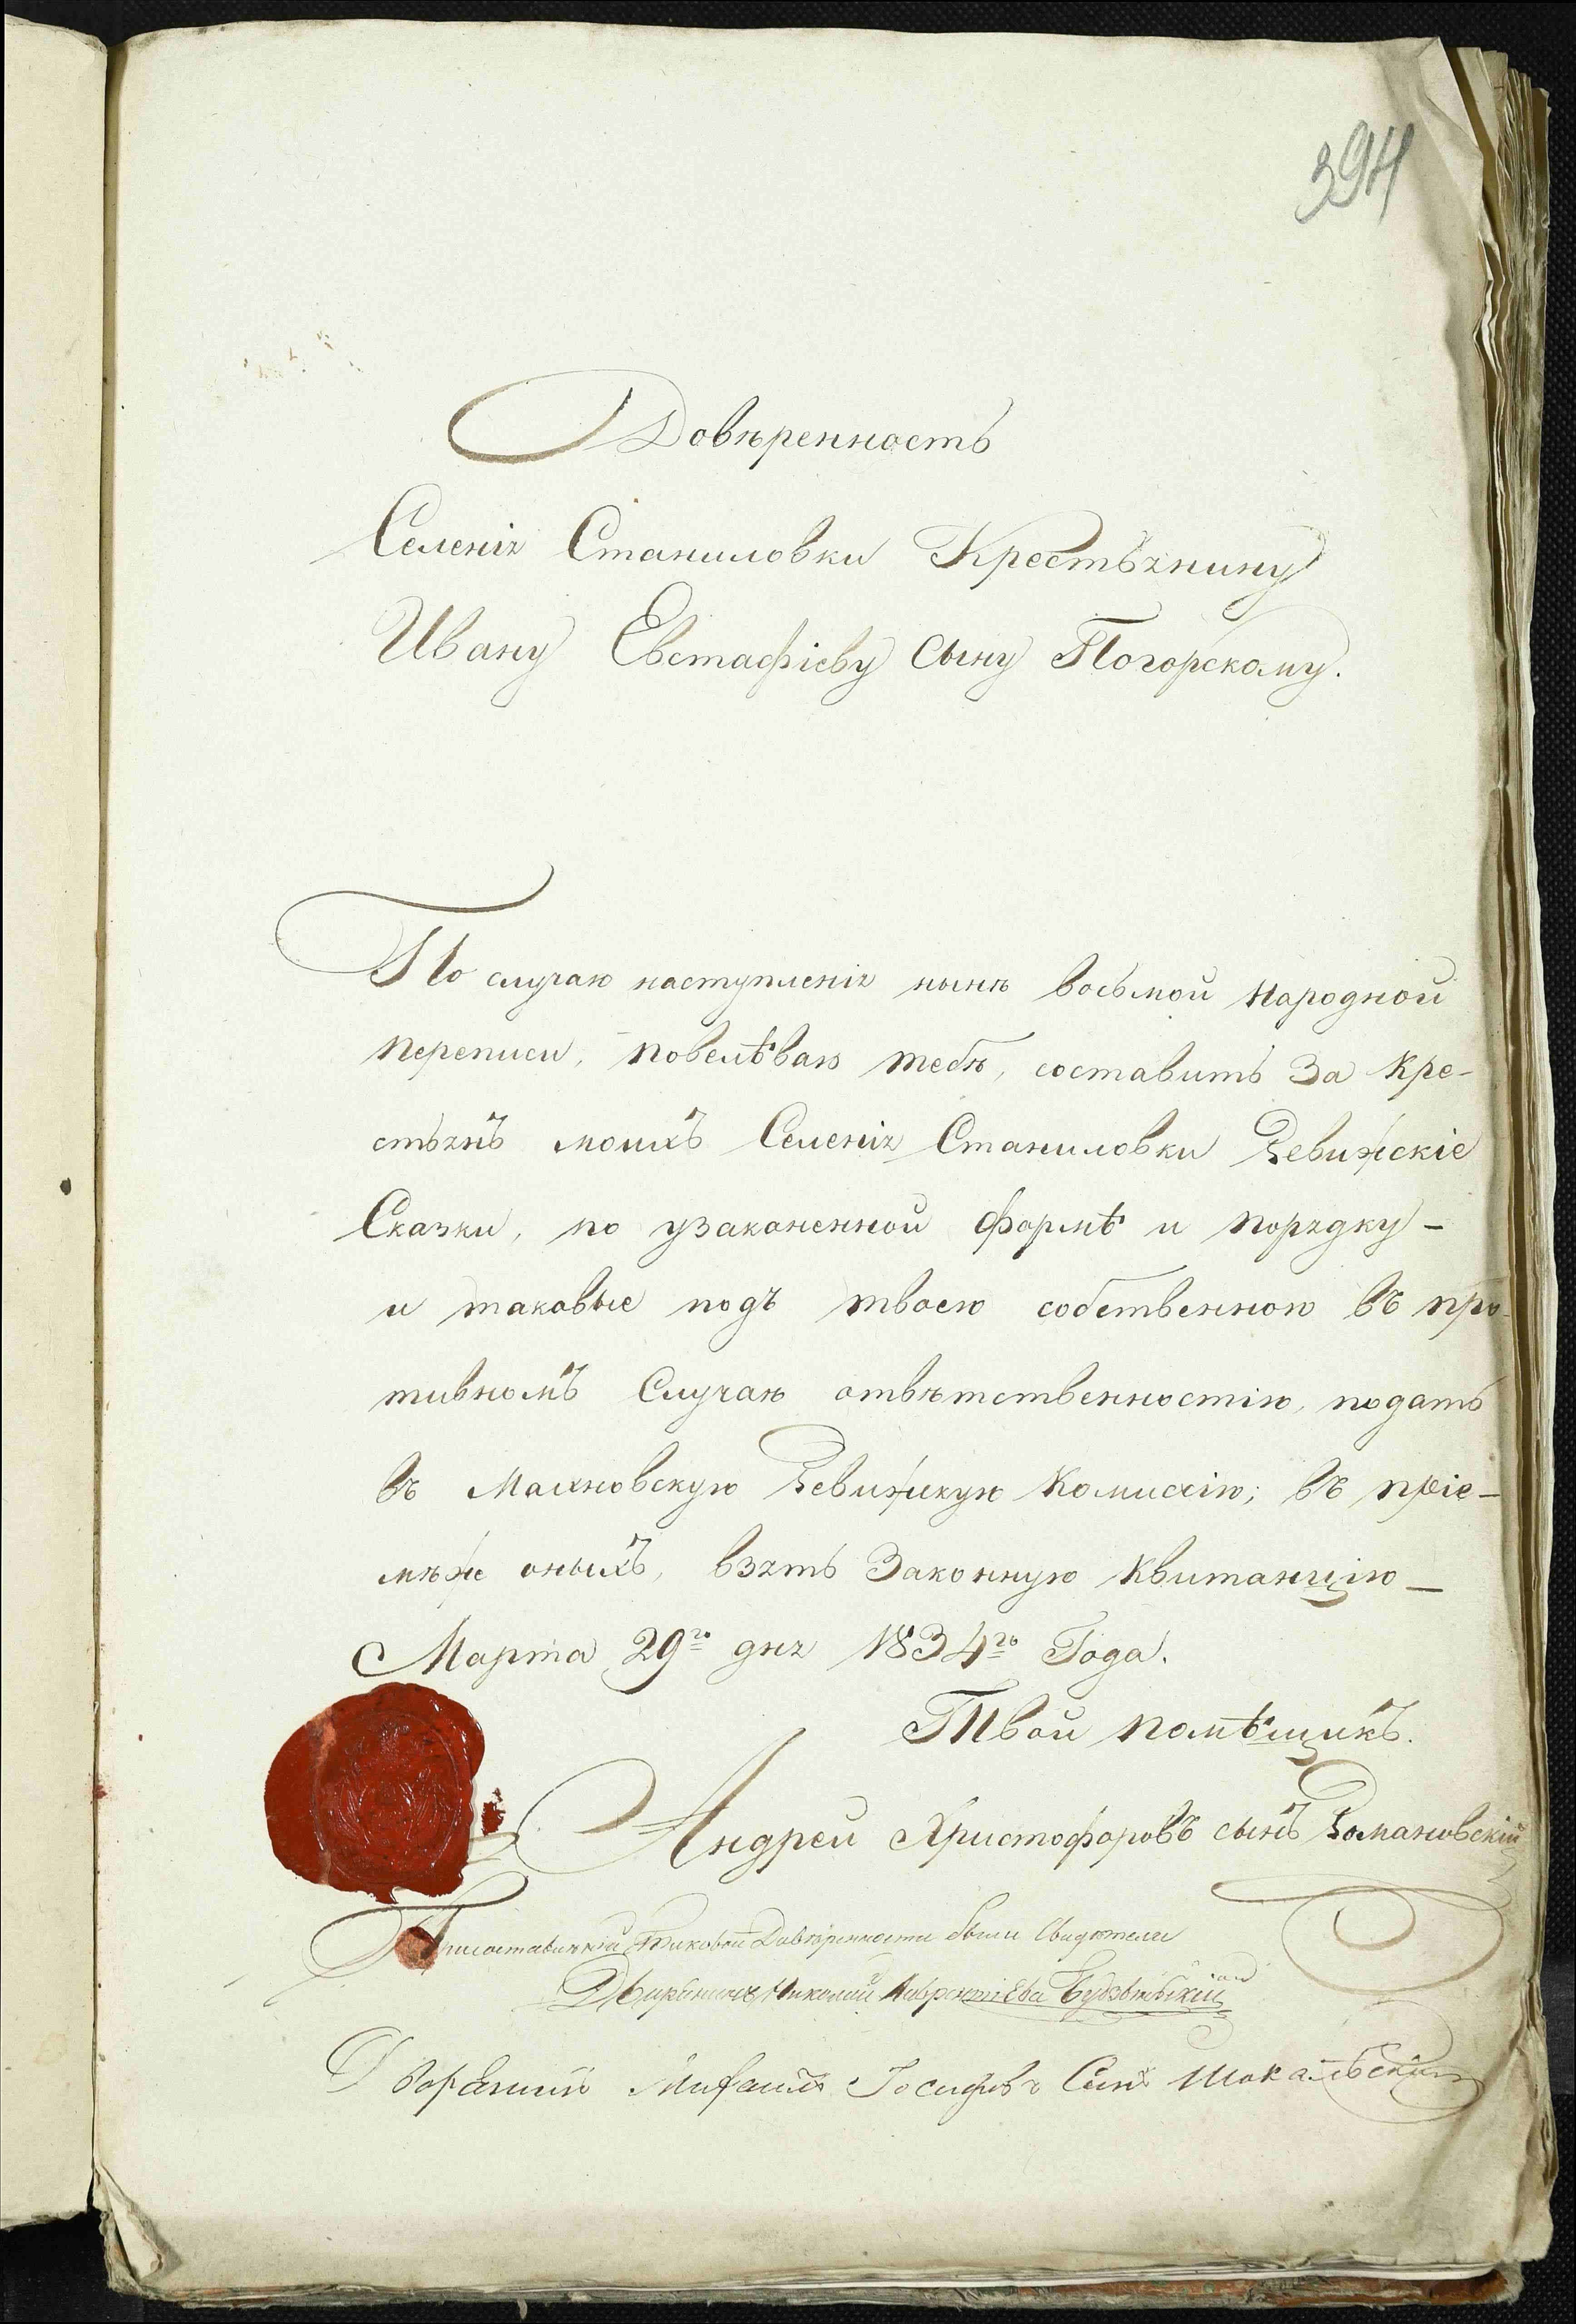 394
Довѣренность
Селенія Станиловки Крестьянину
Ивану Евстафіеву Сыну Погорскому.
По случаю наступленія нынѣ восьмой народной
переписи, повелѣваю тебѣ, составить За кре-
стьянъ моихъ Селенія Станиловки Ревижскіе
Сказки, по узаконенной формѣ и порядку -
и таковые подъ твоею собственною въ про-
тивномъ Случаѣ отвѣтственностію, подать
въ Махновскую Ревижскую Комисію; въ пріе-
мѣже оныхъ, взять Законную Квитанцію -
Марта 29го дня 1834го Года.
Твой помѣщикъ.
Андрей Христофоровъ сынъ Романовскій
Таковой Довѣренности были Свидѣтели
Николай
Дворанинъ Михаилъ Іосифовъ Синъ Шокальскій